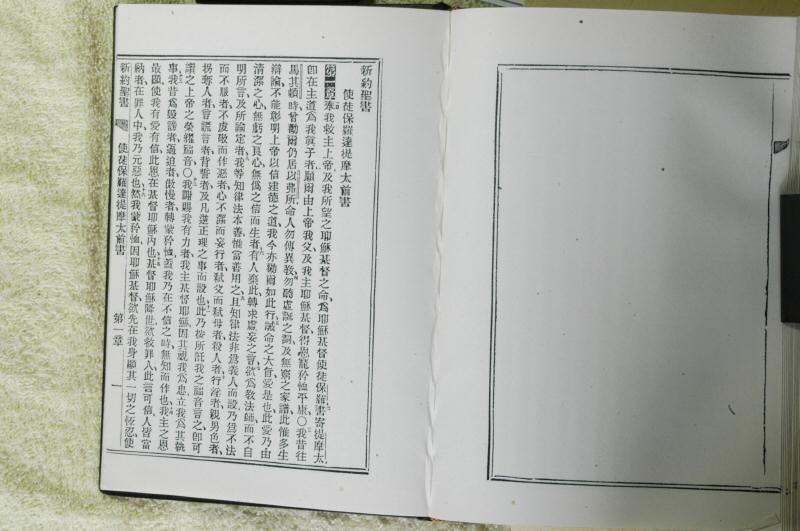 新約聖書
使徒保羅達提摩太前書
第一章奉我救主上帝及我所望之耶穌基督之命、爲耶穌基督使徒保羅、書寄提摩太、
卽在主道爲我眞子者、願爾由上帝我父及我主耶穌基督、得恩寵矜恤平康、〇我昔往
馬其頓時、曾勸爾仍居以弗所、命人勿傳異敎、勿聽虛誕之詞、及無窮之家譜、此惟多生
辯論、不能彰明上帝以信建德之道、我今亦勸爾如此行、誡命之大旨、愛是也、此愛乃由
淸潔之心、無虧之良心、無僞之信而生者、有人棄此、轉求虛妄之言、欲爲敎法師、而不自
明所言及所論定者、我等知律法本善、惟當善用之、且知律法非爲義人而設、乃爲不法
而不服者、不虔敬而作惡者、心不潔而妄行者、弑父而弑母者、殺人者、行淫者、親男色者、
拐奪人者、言謊言者、背誓者、及凡逆正理之事而設也、此乃按所託我之福音言之、卽可
讚之上帝之榮耀福音、〇我謝賜我有力者、我主基督耶穌、因其視我爲忠、立我爲其執
事、我昔爲毀謗者、逼迫者、傲慢者、轉蒙矜恤、蓋我乃在不信之時、無知而作也、我主之恩
最顯、使我有愛有信、此恩在基督耶穌內也、基督耶穌降世、欲救罪人、此言可信、人皆當
納者、在罪人中、我乃元惡也、然我蒙矜恤、因耶穌基督欲先在我身、顯其一切之恆忍、使
新約聖書 使徒保羅達提摩太前書 第一章 一